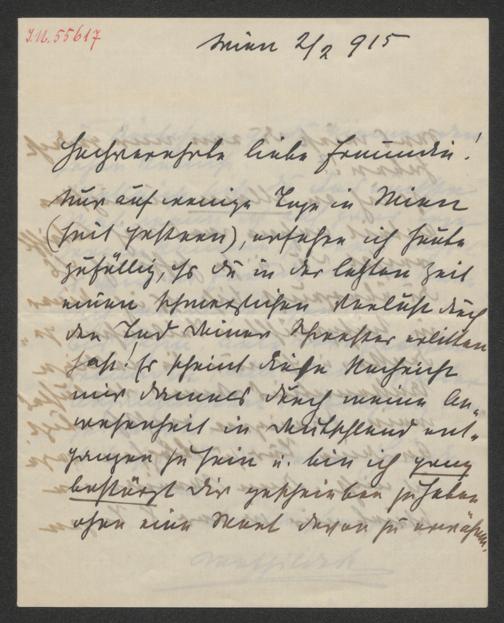 I.N. 55617
Wien 2/2 915
Hochverehrte liebe Freundin!
Nur auf wenige Tage in Wien
(seit gestern), erfahre ich heute
zufällig, daß du in der letzten Zeit
einen schmerzlichen Verlust durch
den Tod deiner Schwester erlitten
hast! Es scheint diese Nachricht
mir damals durch meine An-
wesenheit in Deutschland ent-
gangen zu sein u. bin ich ganz
bestürzt dir geschrieben zu haben
ohne ein Wort davon zu erwähnen.